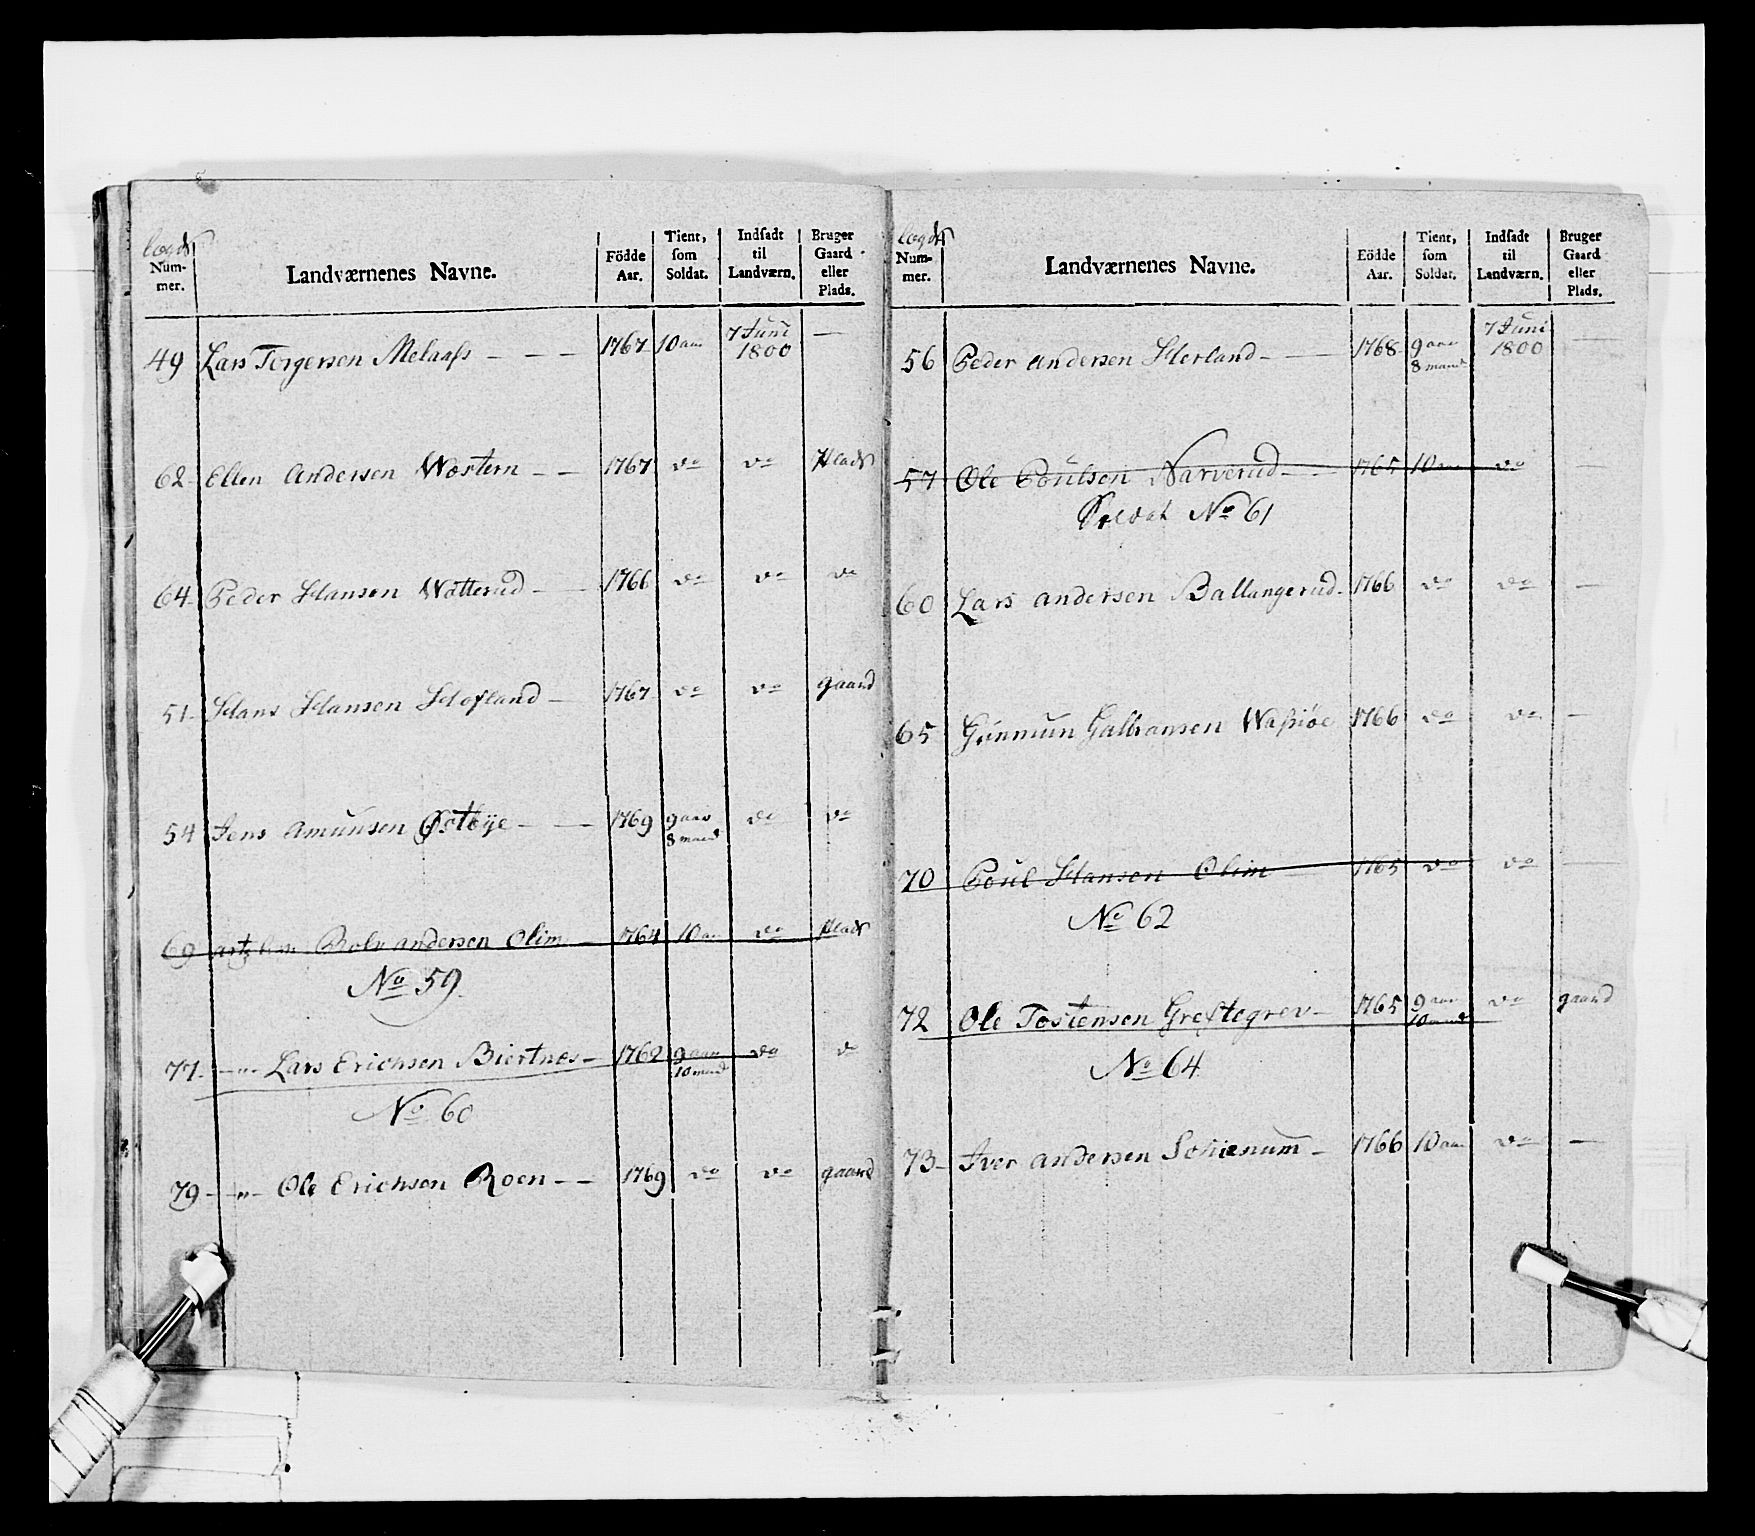 Lægds
Num-
mer.
Landværnenes Navne.
Födde
Aar.
Tient,
som
Soldat.
Indsadt
til
Landværn.
Bruger
Gaard
eller
Plads.
49 Lars Torgersen Melaass - - - 1767 10 aar 7 Juni 1800 —
62 Ellen Andersen Wæstern - - 1767 do do Plads
64 Peder Hansen Watterud - - 1766 do do do
51 Hans Hansen Hofland - 1767 do do gaard
54 Jens Amunsen Østbye - - 1769 9 aar 8 maned do do
69 Rolv Andersen Olim - 1764 10 aar do Plads
No 59
77 - " - Lars Erichsen Biertnæs - 1762 9 aar 10 maned do do
No 60
79 - " - Ole Erichsen Roen - - 1769 do do gaard
Lægds
Num-
mer.
Landværnenes Navne.
Födde
Aar.
Tient,
som
Soldat.
Indsadt
til
Landværn.
Bruger
Gaard
eller
Plads.
56 Peder Andersen Herland - - 1768 9 aar 8 maned 7 Juni 1800 —
57 Ole Poulsen Narverud - 1765 10 aar do —
Soldat No 61
60 Lars Andersen Ballangerud - 1766 do do —
65 Gunmun Galbransen Wassiøe 1766 do do —
70 Poul Hansen Olim 1765 do do —
No 62
72 Ole Tostensen Greftegrev - 1765 9 aar 10 maned do gaard
No 64
73 - Iver Andersen Schienum - 1766 10 aar do —